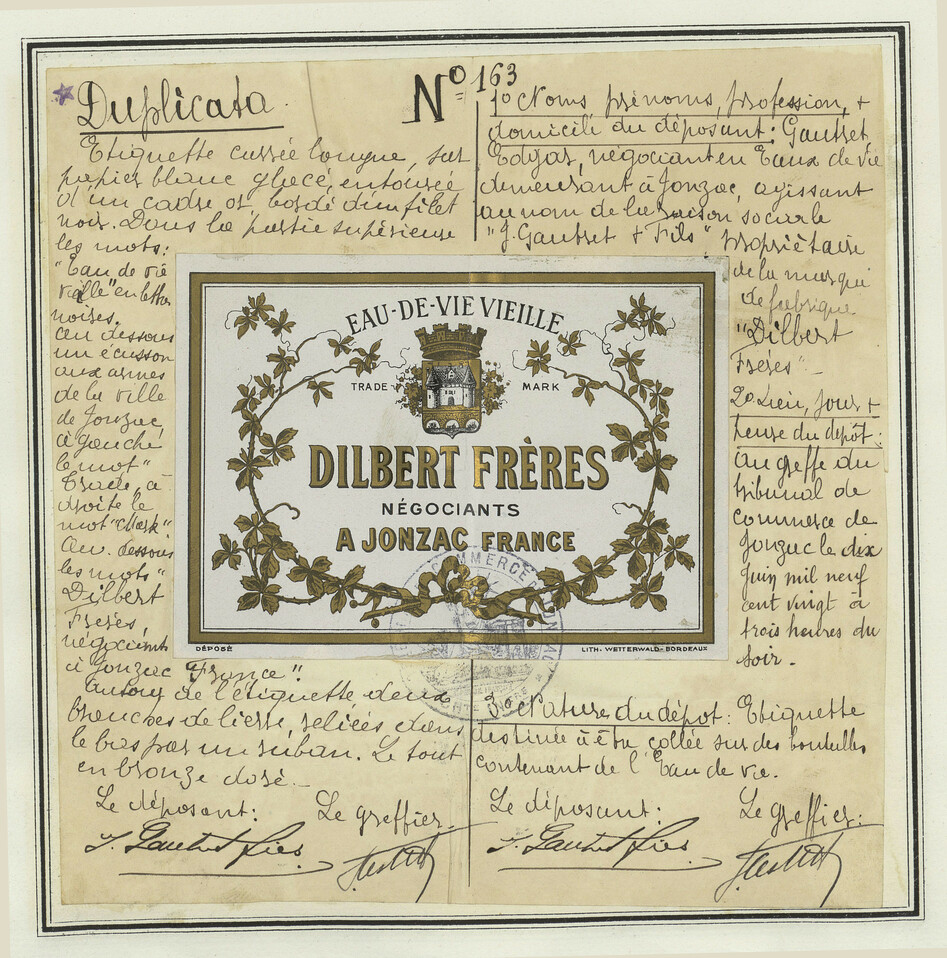 Duplicata.
Nº 163
Etiquette carrée longue sur
papier blanc glacé, entourée
d'un cadre or, bordé d'un filet
noir. Dans la partie supérieure
les mots:
"Eau de vie
vieille" en lettres
noires.
au dessous
un écusson
aux armes
de la ville
de Jonzac,
à gauche
le mot "
Trade, à
droite le
mot "Mark"
Au dessous
les mots "
Dilbert
Frères,
négociants
à Jonzac France".
autour de l'étiquette deux
branches de lierre, reliées dans
le bas par un ruban. Le tout
en bronze doré.-
Le déposant: Le greffier
J. Gautret Fils
1o Noms prénoms, profession, +
domicile du déposant: Gautret
Edgar, négociant en Eaux de Vie
demeurant à Jonzac, agissant
au nom de la raison sociale
"J. Gautret + Fils" propriétaire
de la marque
de fabrique
"Dilbert
Frères"-
2o Lieu, jour +
heure du dépôt:
au greffe du
tribunal de
commerce de
Jonzac le dix
juin mil neuf
cent vingt à
trois heures du
soir.-
3o Nature du dépôt: Etiquette
destinée à être collée sur des bouteilles
contenant de l'Eau de vie.
Le déposant: Le greffier:
J. Gautret Fils
EAU-DE-VIE VIEILLE
TRADE MARK
DILBERT FRÈRES
NÉGOCIANTS
A JONZAC FRANCE
DÉPOSÉ LITH. WETTERWALD-BORDEAUX
COMMERCE JONZAC